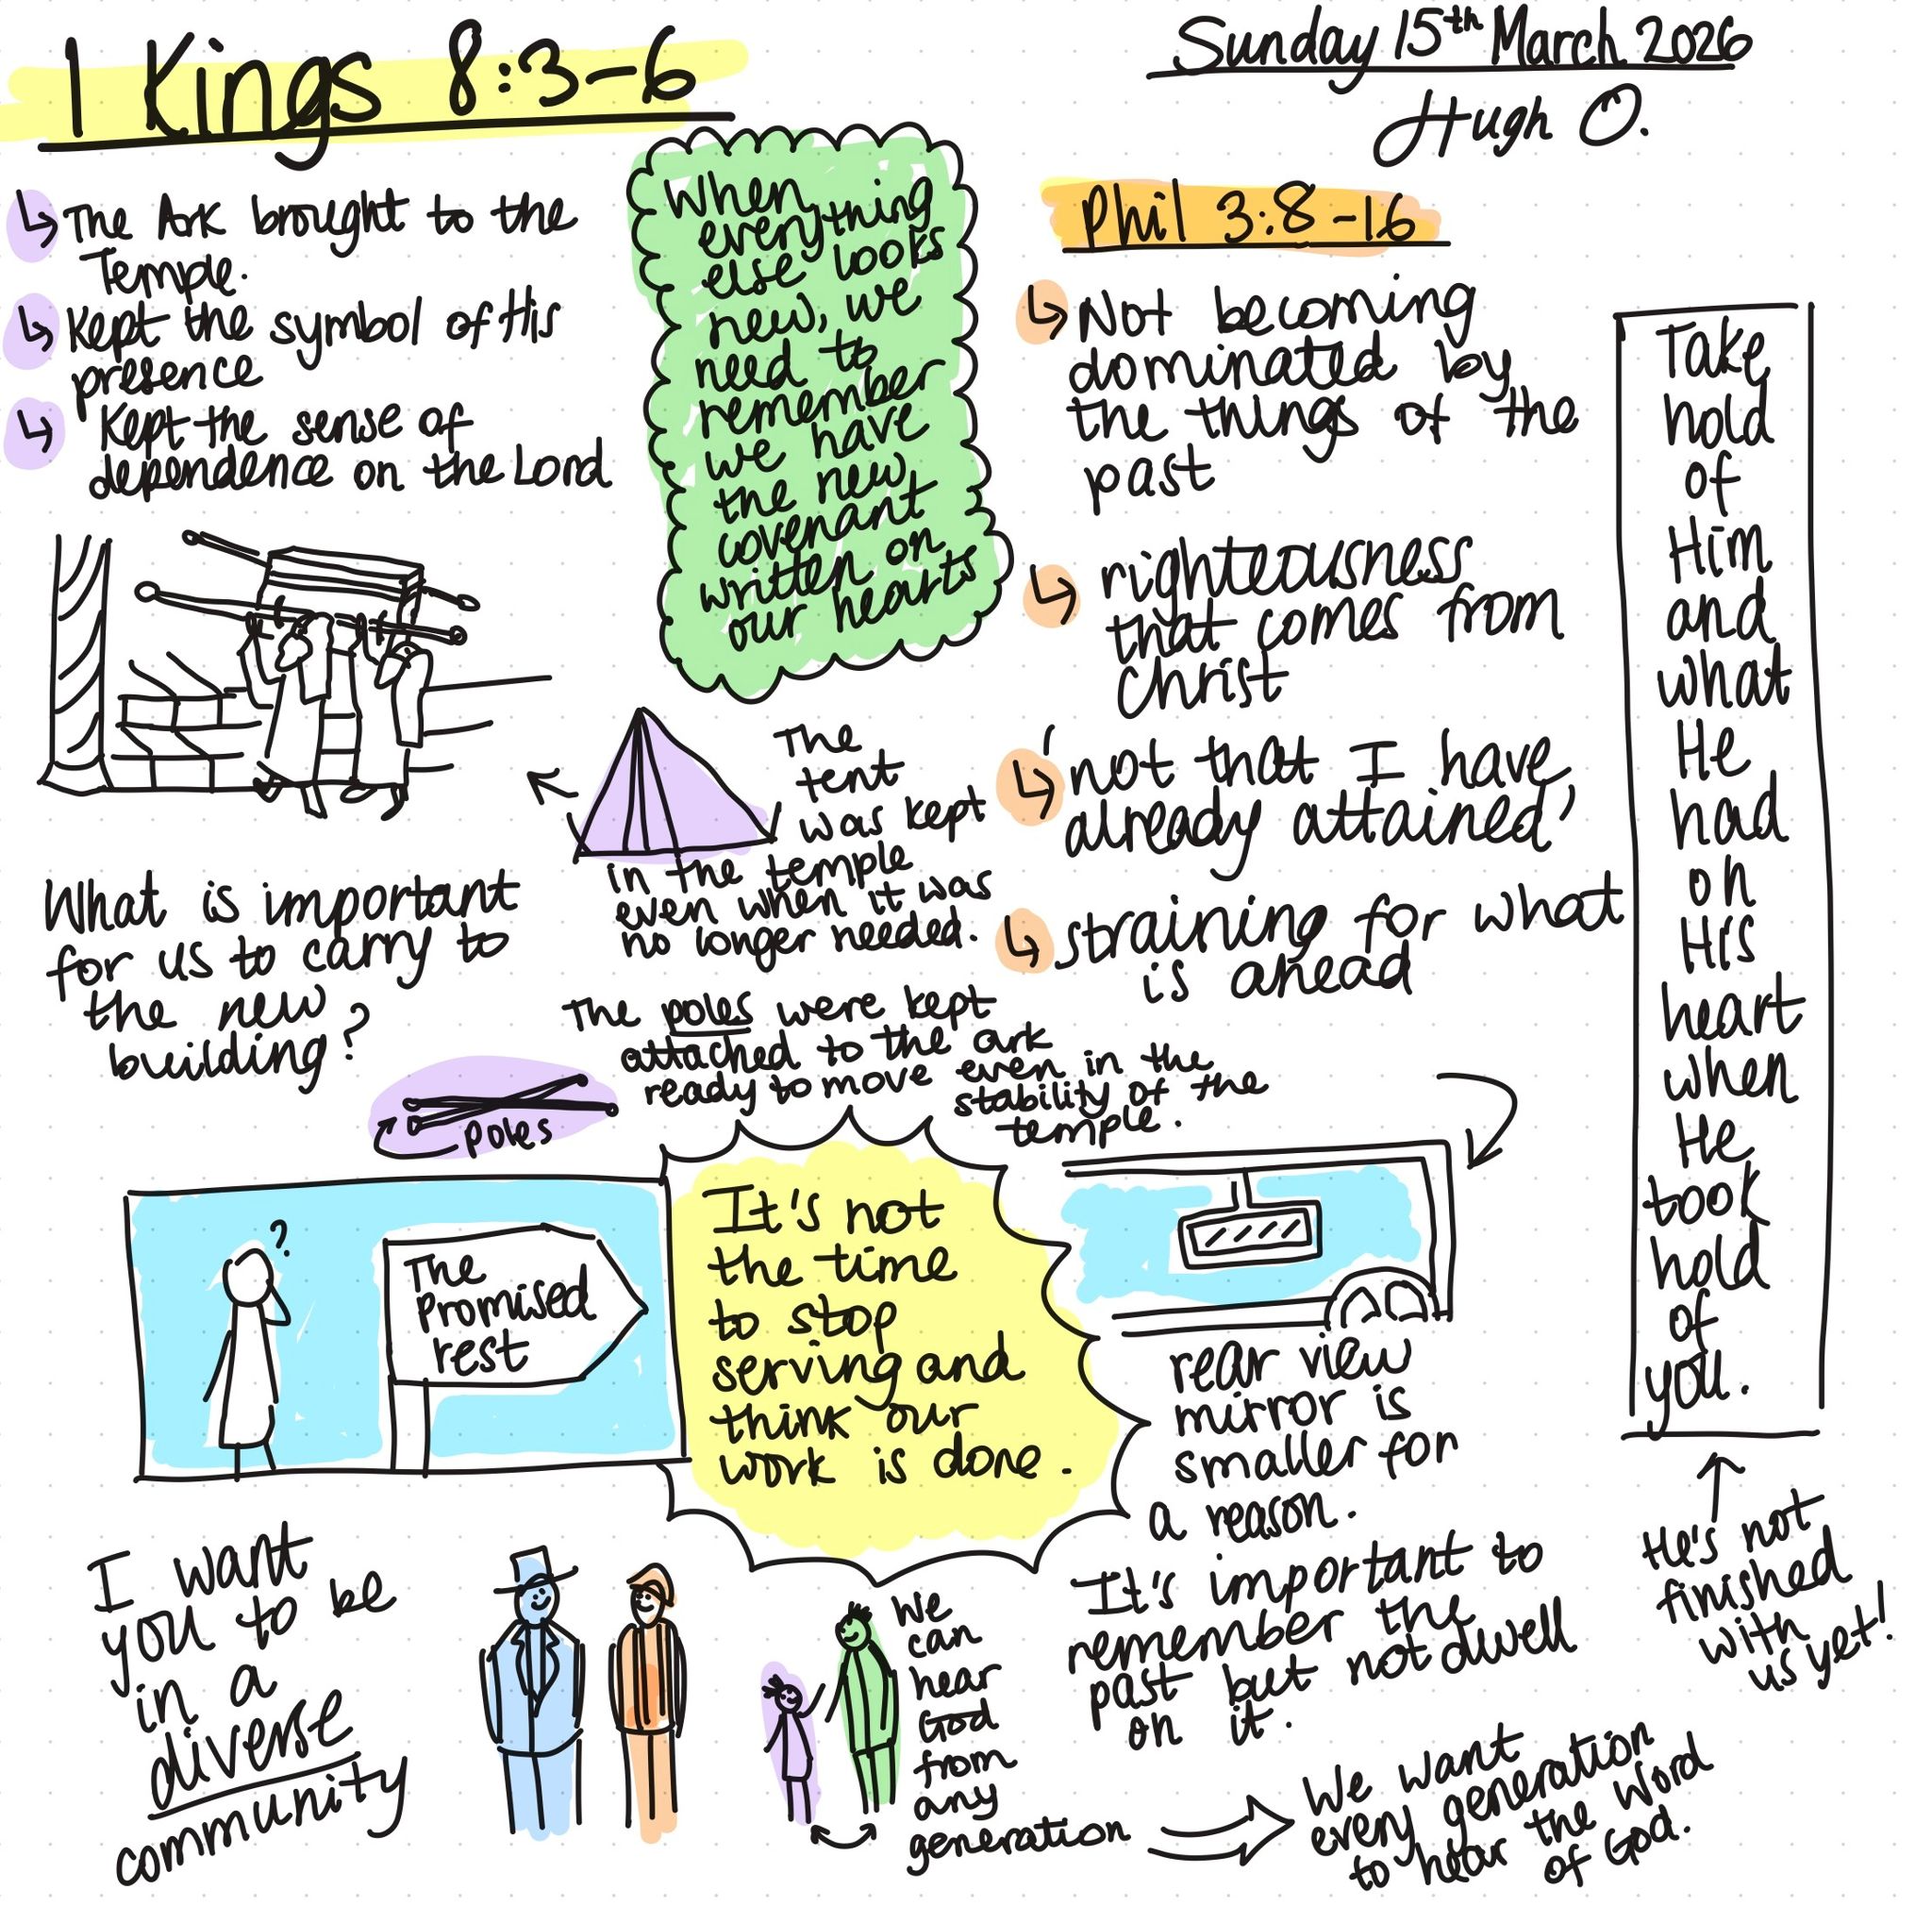 1 Kings 8:3-6
Sunday 15th March 2026
Hugh O.
↳ The Ark brought to the
Temple.
↳ Kept the symbol of His
presence
↳ Kept the sense of
dependence on the Lord
When
everything
else looks
new, we
need to
remember
we have
the new
covenant
written on
our hearts
Phil 3:8-16
↳ Not becoming
dominated by
the things of the
past
↳ righteousness
that comes from
Christ
↳ 'not that I have
already attained'
↳ straining for what
is ahead
Take
hold
of
Him
and
what
He
had
on
His
heart
when
He
took
hold
of
you.
The
tent
was kept
in the temple
even when it was
no longer needed.
What is important
for us to carry to
the new
building?
The poles were kept
attached to the ark
ready to move even in the
stability of the
temple.
poles
?
The
Promised
rest
It's not
the time
to stop
serving and
think our
work is done.
rear view
mirror is
smaller for
a reason.
It's important to
remember the
past but not dwell
on it.
He's not
finished
with
us yet!
I want
you to be
in a
diverse
community
We
can
hear
God
from
any
generation
We want
every generation
to hear the Word
of God.